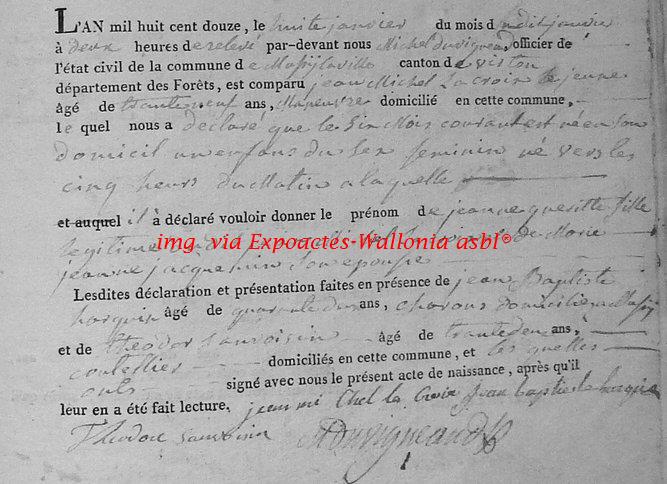 L'AN mil huit cent douze, le huite janvier du mois dudit janvier
à deux heures de relevé par-devant nous Michel duvigneaud officier de
l'état civil de la commune de canton de virton
département des Forêts, est comparu jean Michel La croix le jeune
âgé de tranteneuf ans, Maneuvre domicilié en cette commune,
le quel nous a déclaré que le Six Mois courant est né en Son
domicil un enfans du Sex feminin né vers les
cinq heurs du Matin a laquelle
et auquel il à déclaré vouloir donner le prénom de jeanne fille
legitime de Marie
img. via Expoactes-Wallonia asbl©
jeanne jacquemin Son epouse
Lesdites déclaration et présentation faites en présence de jean Baptiste
âgé de quarante deux ans, charons domicilié a
et de theodor Sauvoisin âgé de trantedeu ans,
coutellier domiciliés en cette commune, et les quelles
onts signé avec nous le présent acte de naissance, après qu'il
leur en a été fait lecture, jean mi Chel la Croix Jean baptiste
Theodore MDuvigneaud